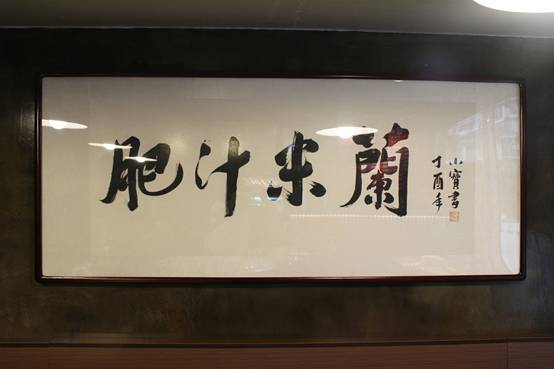 肥汁米蘭
丁酉年
小寶書